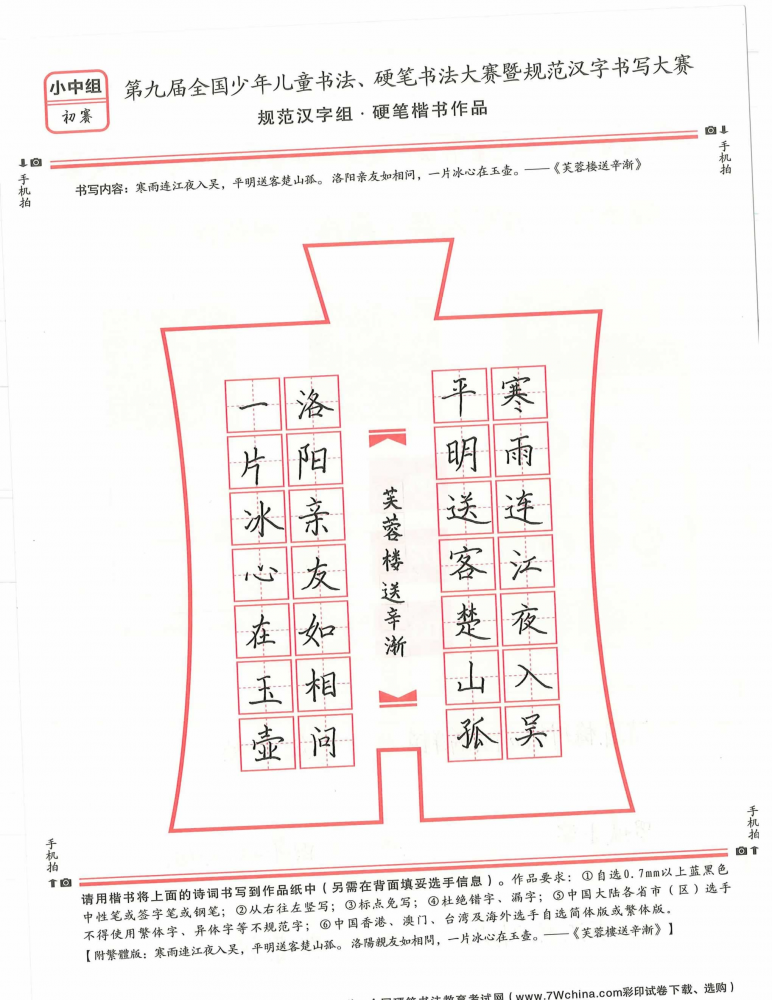 小中组
初赛
第九届全国少年儿童书法、硬笔书法大赛暨规范汉字书写大赛
规范汉字组·硬笔楷书作品
手机拍
手机拍
书写内容：寒雨连江夜入吴，平明送客楚山孤。洛阳亲友如相问，一片冰心在玉壶。——《芙蓉楼送辛渐》
寒雨连江夜入吴
平明送客楚山孤
芙蓉楼送辛渐
洛阳亲友如相问
一片冰心在玉壶
手机拍
手机拍
请用楷书将上面的诗词书写到作品纸中（另需在背面填妥选手信息）。作品要求：①自选0.7mm以上蓝黑色
中性笔或签字笔或钢笔；②从右往左竖写；③标点免写；④杜绝错字、漏字；⑤中国大陆各省市（区）选手
不得使用繁体字、异体字等不规范字；⑥中国香港、澳门、台湾及海外选手自选简体版或繁体版。
【附繁體版：寒雨連江夜入吴，平明送客楚山孤。洛陽親友如相問，一片冰心在玉壶。——《芙蓉樓送辛漸》】
硬笔书法教育考试网（www.7Wchina.com彩印试卷下载、选购）